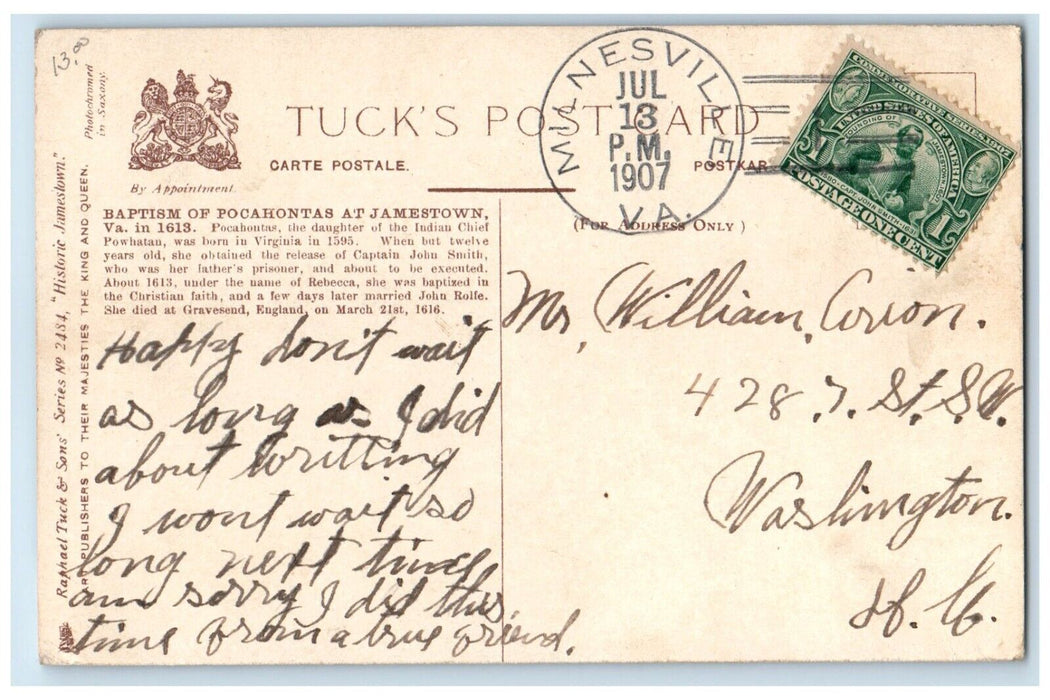 13.00
Photochromed
in Saxony.
By Appointment.
TUCK'S POST CARD
CARTE POSTALE.
POSTKAR
MUNNESVILLE
JUL
13
P.M.
1907
VA.
COMMEMORATIVE SERIES 1907
UNITED STATES OF AMERICA
FOUNDING OF
1580-CAPT. JOHN SMITH-1631
1 POSTAGE ONE CENT 1
(FOR ADDRESS ONLY)
BAPTISM OF POCAHONTAS AT JAMESTOWN,
Va. in 1613. Pocahontas, the daughter of the Indian Chief
Powhatan, was born in Virginia in 1595. When but twelve
years old, she obtained the release of Captain John Smith,
who was her father's prisoner, and about to be executed.
About 1613, under the name of Rebecca, she was baptized in
the Christian faith, and a few days later married John Rolfe.
She died at Gravesend, England, on March 21st, 1616.
Raphael Tuck & Sons' Series Nº 2484, "Historic Jamestown."
ART PUBLISHERS TO THEIR MAJESTIES THE KING AND QUEEN.
Happy don't wait
as long as I did
about writting
I wont wait so
long next time
am sorry I did this
time from a true friend.
Mr, William,
428 7. St. S.W.
Washington.
D. C.